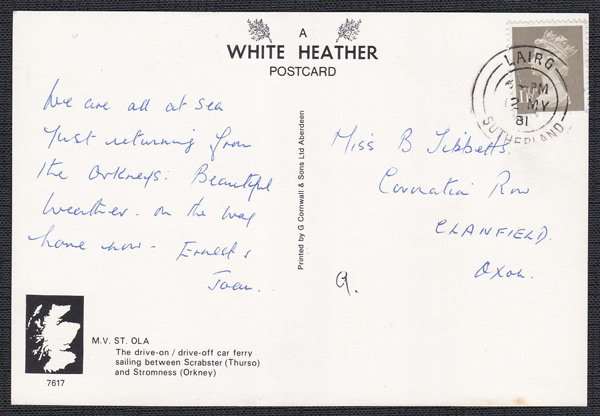 A
WHITE HEATHER
POSTCARD
We are all at sea
Just returning from
the Orkneys. Beautiful
weather. on the way
home now - Ernest &
Joan.
Printed by G Cornwall & Sons Ltd Aberdeen
LAIRG
PM
MY
81
SUTHERLAND
Miss B Tibbetts.
Coronation Row
CLANFIELD.
Oxon.
M.V. ST. OLA
The drive-on / drive-off car ferry
sailing between Scrabster (Thurso)
and Stromness (Orkney)
7617